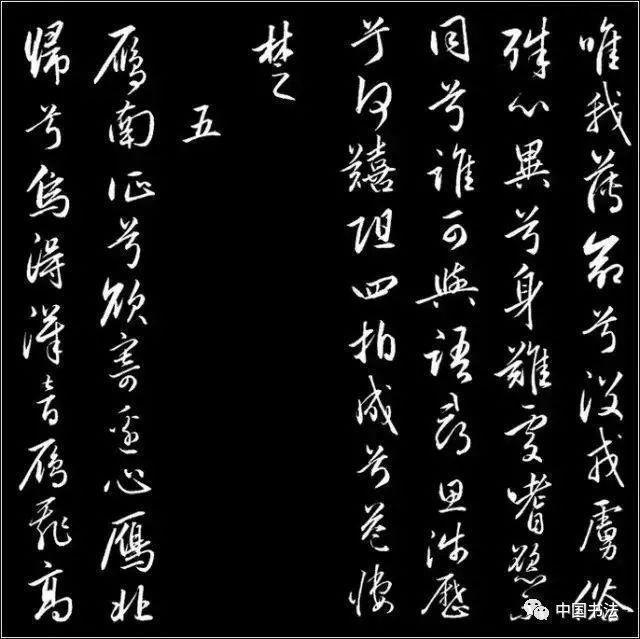 唯我薄命兮没戎虜俗
殊心異兮身難處嗜慾不
同兮誰可與語尋思涉歷
兮何囏阻四拍成兮益悽
楚
五
鴈南征兮欲寄邊心鴈北
歸兮為得漢音鴈飛高
中国书法